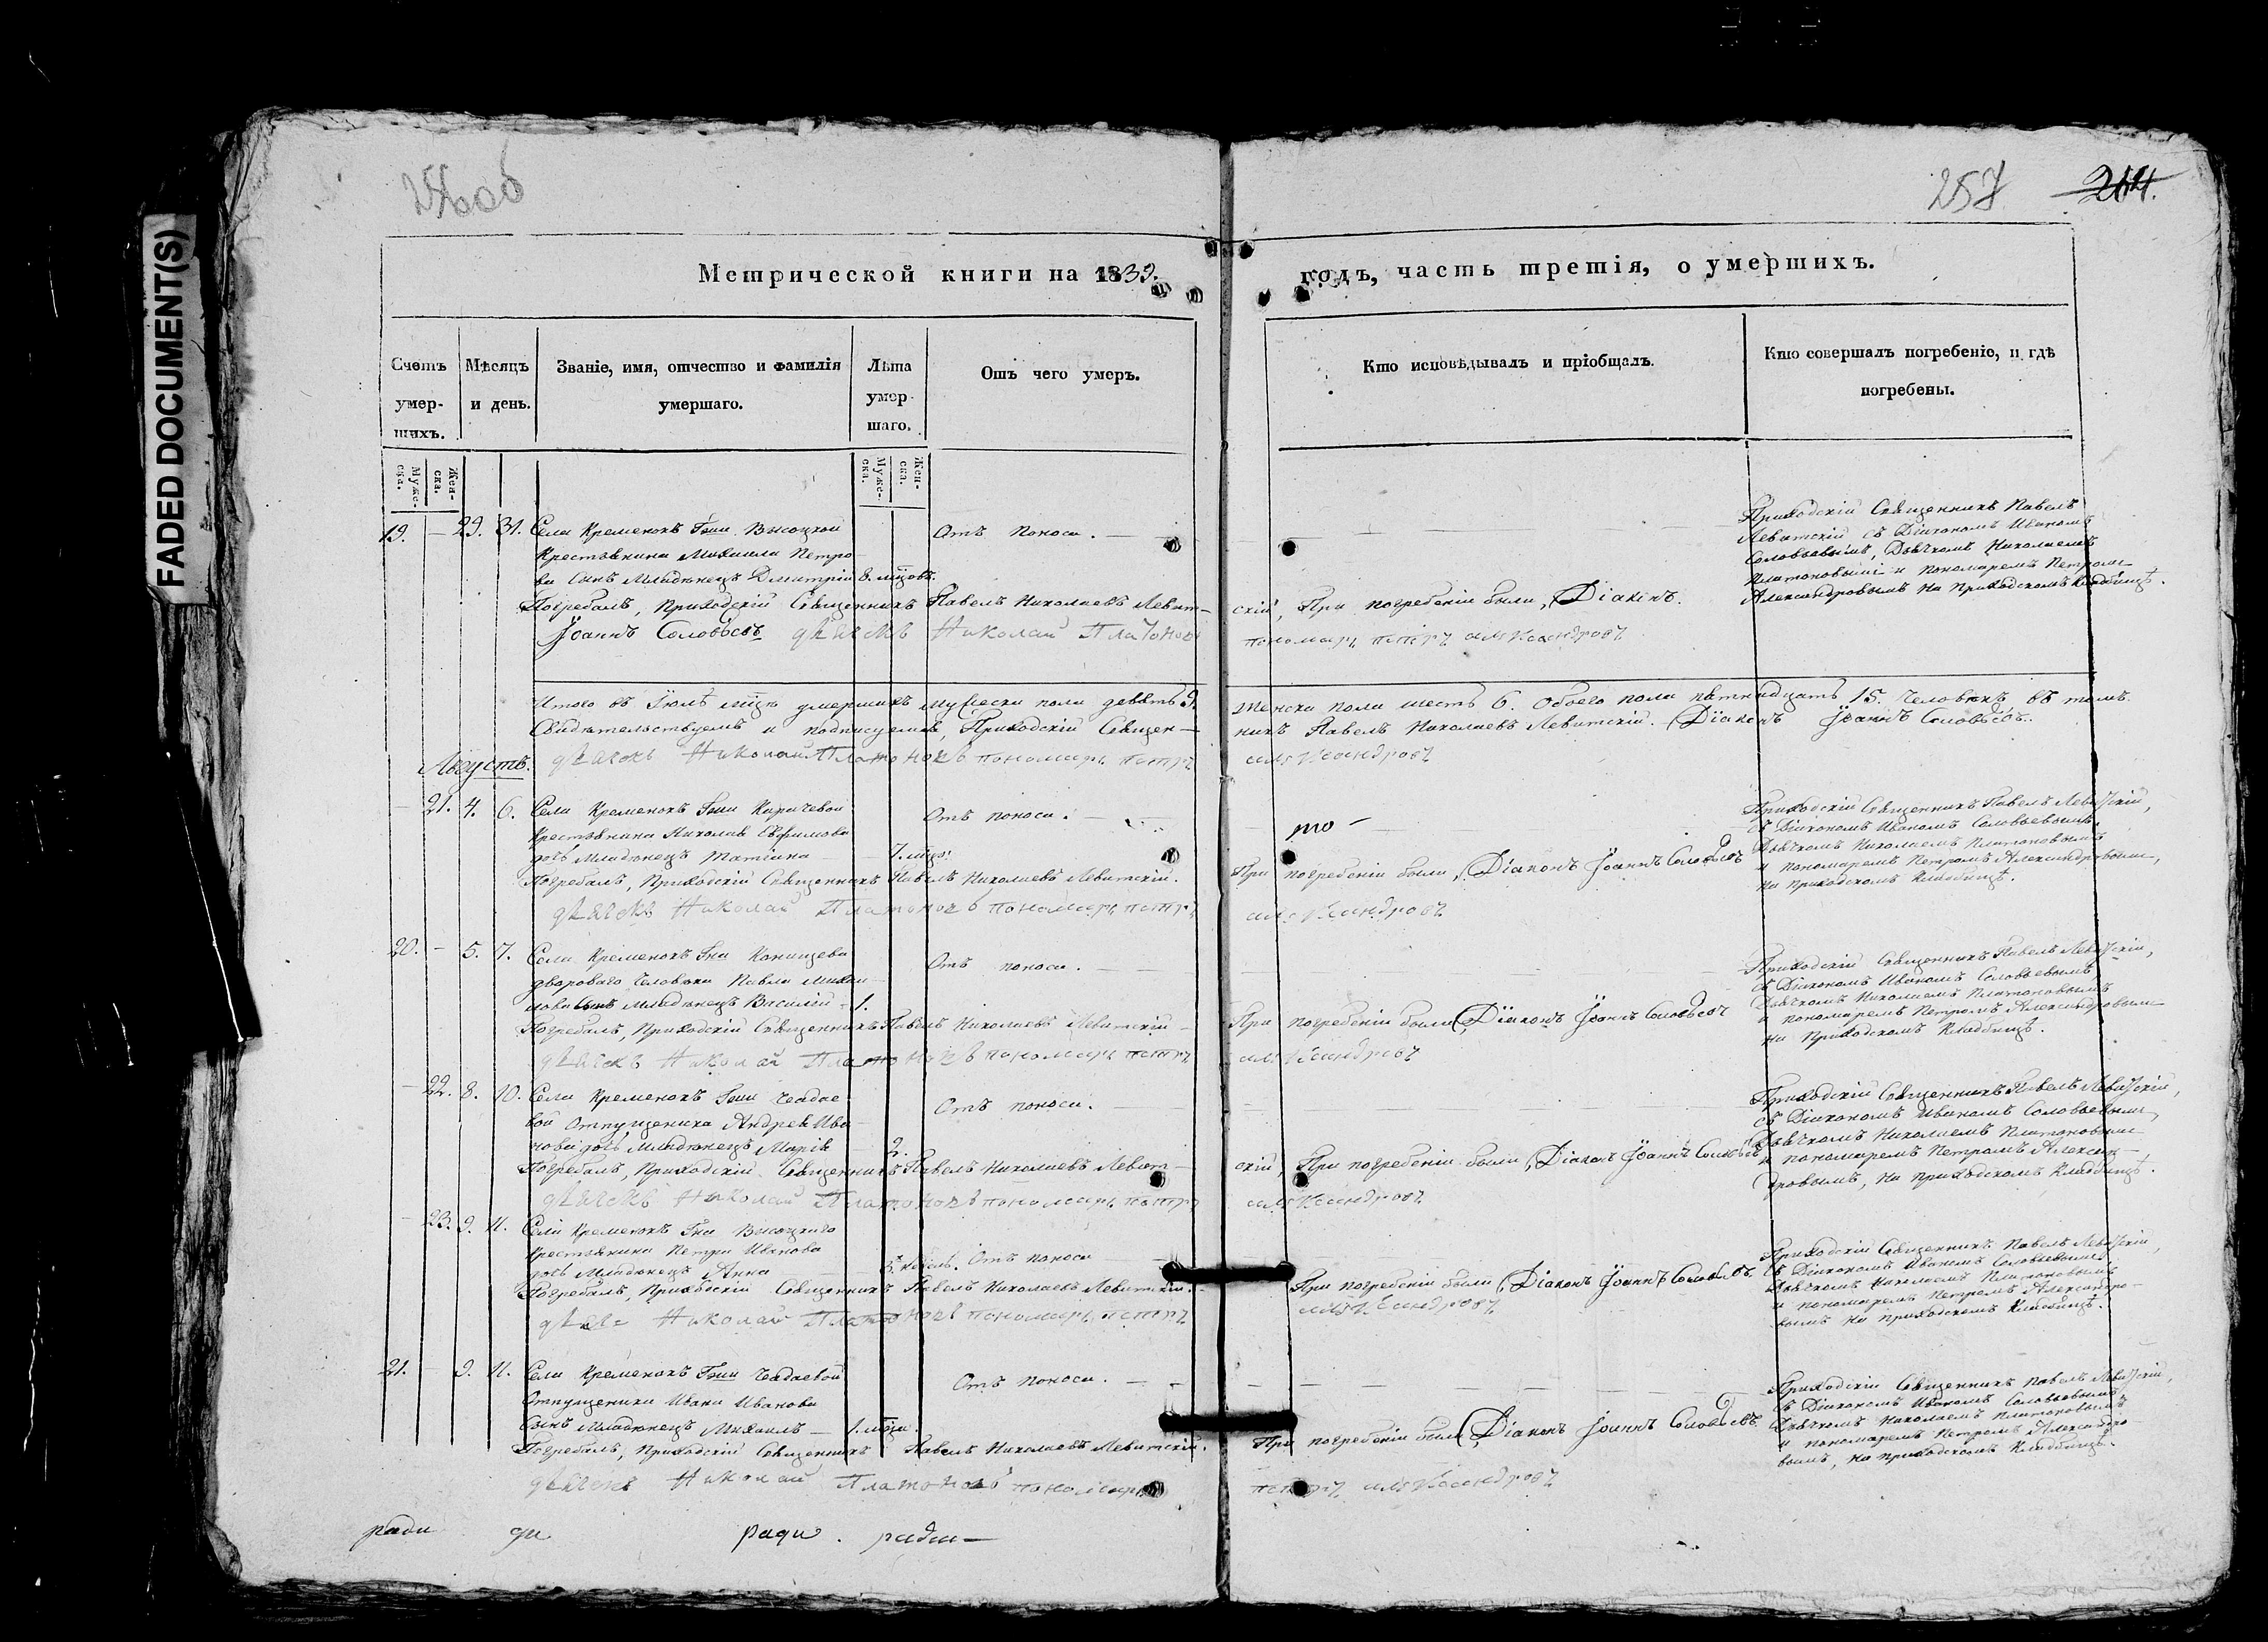 FADED DOCUMENT(S)
256 об
257
264.
Метрической книги на 1839.
годъ, часть третія, о умершихъ.
Счетъ умер-шихъ.
Мѣсяцъ и день.
Званіе, имя, отчество и фамилія умершаго.
Лѣта умер-шаго.
Отъ чего умеръ.
Кто исповѣдывалъ и пріобщалъ.
Кто совершалъ погребеніе, и гдѣ погребены.
Муже-ска.
Жен-ска.
Муже-ска.
Жен-ска.
19. — 29. 31. Села Кременокъ Гжи Высоцкой
Крестьянина Михаила Петро-
ва сынъ Младѣнецъ Димитрій 8. мцовъ.
Отъ поноса. —
Приходскій Священникъ Павелъ
Левитскій съ Діякономъ Иваномъ
Соловьевымъ, Дьячкомъ Николаемъ
Платоновымъ и пономаремъ Петромъ
Александровымъ на Приходскомъ Кладбищѣ.
Погребалъ, Приходскій Священникъ Павелъ Николаевъ Левит-
скій, При погребеніи были, Діаконъ.
Іоаннъ Соловьевъ дьячекъ Николай Платоновъ
пономарь петръ александровъ
Итого въ Іюлѣ мцѣ умершихъ мужеска пола девять 9.
Женска пола шесть 6. Обоего пола пятнадцать 15. Человѣкъ въ томъ.
Свидѣтельствуемъ и подписуемся, Приходскій Священ-
никъ Павелъ Николаевъ Левитскій. Діаконъ Іоаннъ Соловьевъ.
дьячекъ Николай Платоновъ пономарь петръ
александровъ
Августъ.
— 21. 4. 6. Села Кременокъ Гжи Каричевой
Крестьянина Николая Евфимова
дочь Младѣнецъ Татіана — 7. мцъ.
Отъ поноса. —
то —
Приходскій Священникъ Павелъ Левитскій,
съ Діякономъ Иваномъ Соловьевымъ,
Дьячкомъ Николаемъ Платоновымъ
и пономаремъ Петромъ Александровымъ,
на приходскомъ Кладбищѣ.
Погребалъ, Приходскій Священникъ Павелъ Николаевъ Левитскій.
При погребеніи были, Діаконъ Іоаннъ Соловьевъ
дьячекъ Николай Платоновъ пономарь петръ
александровъ
20. — 5. 7. Села Кременокъ Гна Канищева
двороваго Человѣка Павла Михаи-
лова сынъ Младѣнецъ Василій — 1.
Отъ поноса. —
Приходскій Священникъ Павелъ Левитскій,
съ Діякономъ Иваномъ Соловьевымъ
Дьячкомъ Николаемъ Платоновымъ
и пономаремъ Петромъ Александровымъ
на Приходскомъ Кладбищѣ.
Погребалъ, Приходскій Священникъ Павелъ Николаевъ Левитскій
При погребеніи были, Діаконъ Іоаннъ Соловьевъ
дьячекъ Николай Платоновъ пономарь петръ
александровъ
— 22. 8. 10. Села Кременокъ Гжи Чадае-
вой Отпущеника Андрея Ива-
нова дочь Младѣнецъ Марія 2.
Отъ поноса.
Приходскій Священникъ Павелъ Левитскій,
съ Діякономъ Иваномъ Соловьевымъ,
Дьячкомъ Николаемъ Платоновымъ
и пономаремъ Петромъ Алексан-
дровымъ, на приходскомъ Кладбищѣ.
Погребалъ, Приходскій Священникъ Павелъ Николаевъ Левит-
скій, При погребеніи были, Діаконъ Іоаннъ Соловьевъ
дьячекъ Николай Платоновъ пономарь петръ
александровъ
— 23. 9. 11. Села Кременокъ Гна Высоцкаго
Крестьянина Петра Иванова
дочь Младѣнецъ Анна
недѣль. Отъ поноса
Приходскій Священникъ Павелъ Левитскій,
съ Діякономъ Иваномъ Соловьевымъ
Дьячкомъ Николаемъ Платоновымъ
и пономаремъ Петромъ Александро-
вымъ на приходскомъ Кладбищѣ.
Погребалъ, Приходскій Священникъ Павелъ Николаевъ Левитскій.
При погребеніи были, Діаконъ Іоаннъ Соловьевъ.
Николай Платоновъ пономарь петръ
александровъ
21. — 9. 11. Села Кременокъ Гжи Чадаевой
Отпущеника Ивана Иванова
Сынъ Младѣнецъ Михаилъ — 1. мца.
Отъ поноса. —
Приходскій Священникъ Павелъ Левитскій,
съ Діякономъ Иваномъ Соловьевымъ
Дьячкомъ Николаемъ Платоновымъ
и пономаремъ Петромъ Александро-
вымъ, на приходскомъ Кладбищѣ.
Погребалъ, Приходскій Священникъ Павелъ Николаевъ Левитскій.
При погребеніи были, Діаконъ Іоаннъ Соловьевъ.
дьячекъ Николай Платоновъ пономарь
петръ александровъ
ради ди ради . ради —